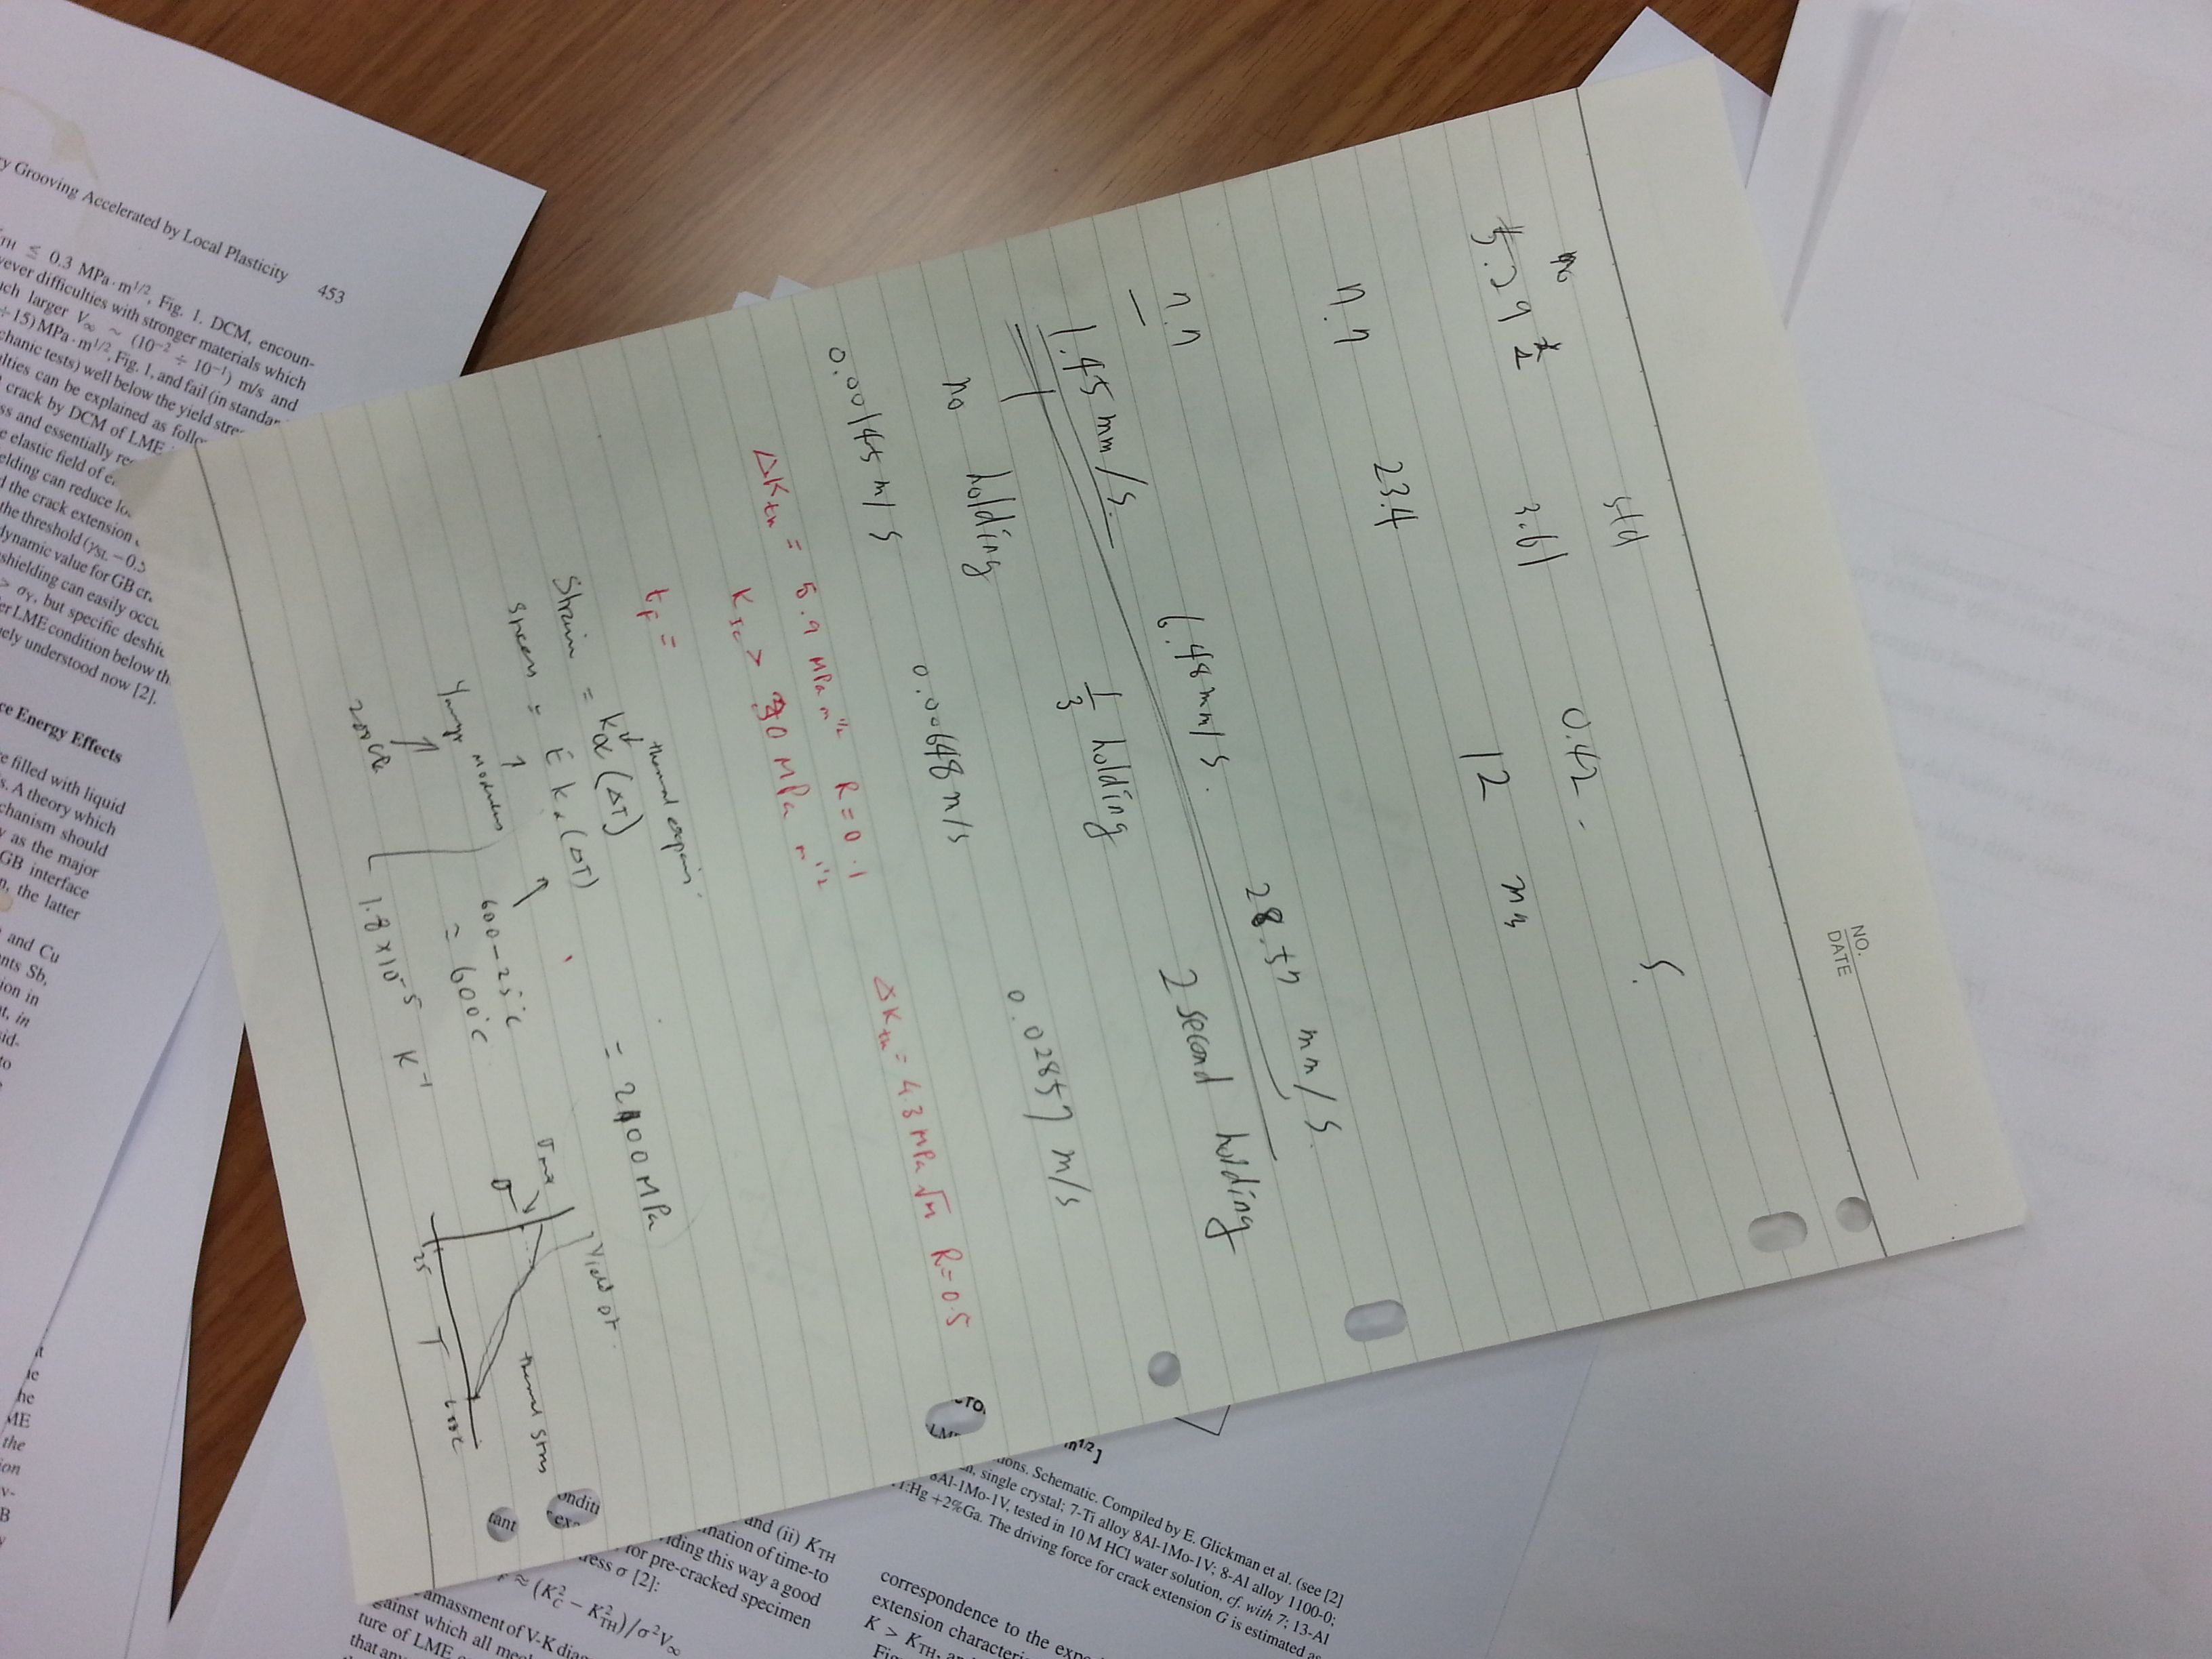 NO.
DATE
no
std
5.29
3.61
0.42
S.
n.n
23.4
12
mm
n.n
6.48 mm/s.
28.57 mm/s.
1.45 mm/s.
no holding
1/3 holding
2 second holding
0.00145 m/s
0.00648 m/s
0.02857 m/s
ΔKth = 5.9 MPa m^1/2 R=0.1
ΔKth = 4.3 MPa √m R=0.5
KIc > 30 MPa m^1/2
tF =
thermal expansi.
Strain = kα (ΔT)
= 2100 MPa
stress = E kα (ΔT)
600-25°C
= 600°C
modulus
1.8×10^-5 K^-1
σmax
σ
Yield
thermal stress
25
T
600°C
y Grooving Accelerated by Local Plasticity
453
TH ≤ 0.3 MPa·m1/2, Fig. 1. DCM, encoun-
ever difficulties with stronger materials which
ch larger V∞ ~ (10−2 ÷ 10−1) m/s and
÷15) MPa·m1/2, Fig. 1, and fail (in standar
chanic tests) well below the yield stre
lties can be explained as follo
crack by DCM of LME
ss and essentially re
e elastic field of
elding can reduce lo
d the crack extension
the threshold (γSL − 0.5
dynamic value for GB cr
shielding can easily occu
> σY, but specific deshi
er LME condition below th
ely understood now [2].
ce Energy Effects
e filled with liquid
s. A theory which
chanism should
y as the major
GB interface
n, the latter
and Cu
nts Sb,
ion in
t, in
id-
to
he
ME
the
ion
v-
B
tant
onditi
and (ii) KTH
ination of time-to
iding this way a good
for pre-cracked specimen
ress σ [2]:
≈ (K²C − K²TH)/σ²V∞
amassment of V-K diag
gainst which all mech
ture of LME
that any
m1/2]
ions. Schematic. Compiled by E. Glickman et al. (see [2]
n, single crystal; 7-Ti alloy 8Al-1Mo-1V; 8-Al alloy 1100-0;
8Al-1Mo-1V, tested in 10 M HCl water solution, cf. with 7; 13-Al
:Hg +2%Ga. The driving force for crack extension G is estimated as
correspondence to the expe
extension characteris
K > KTH, an
Fig